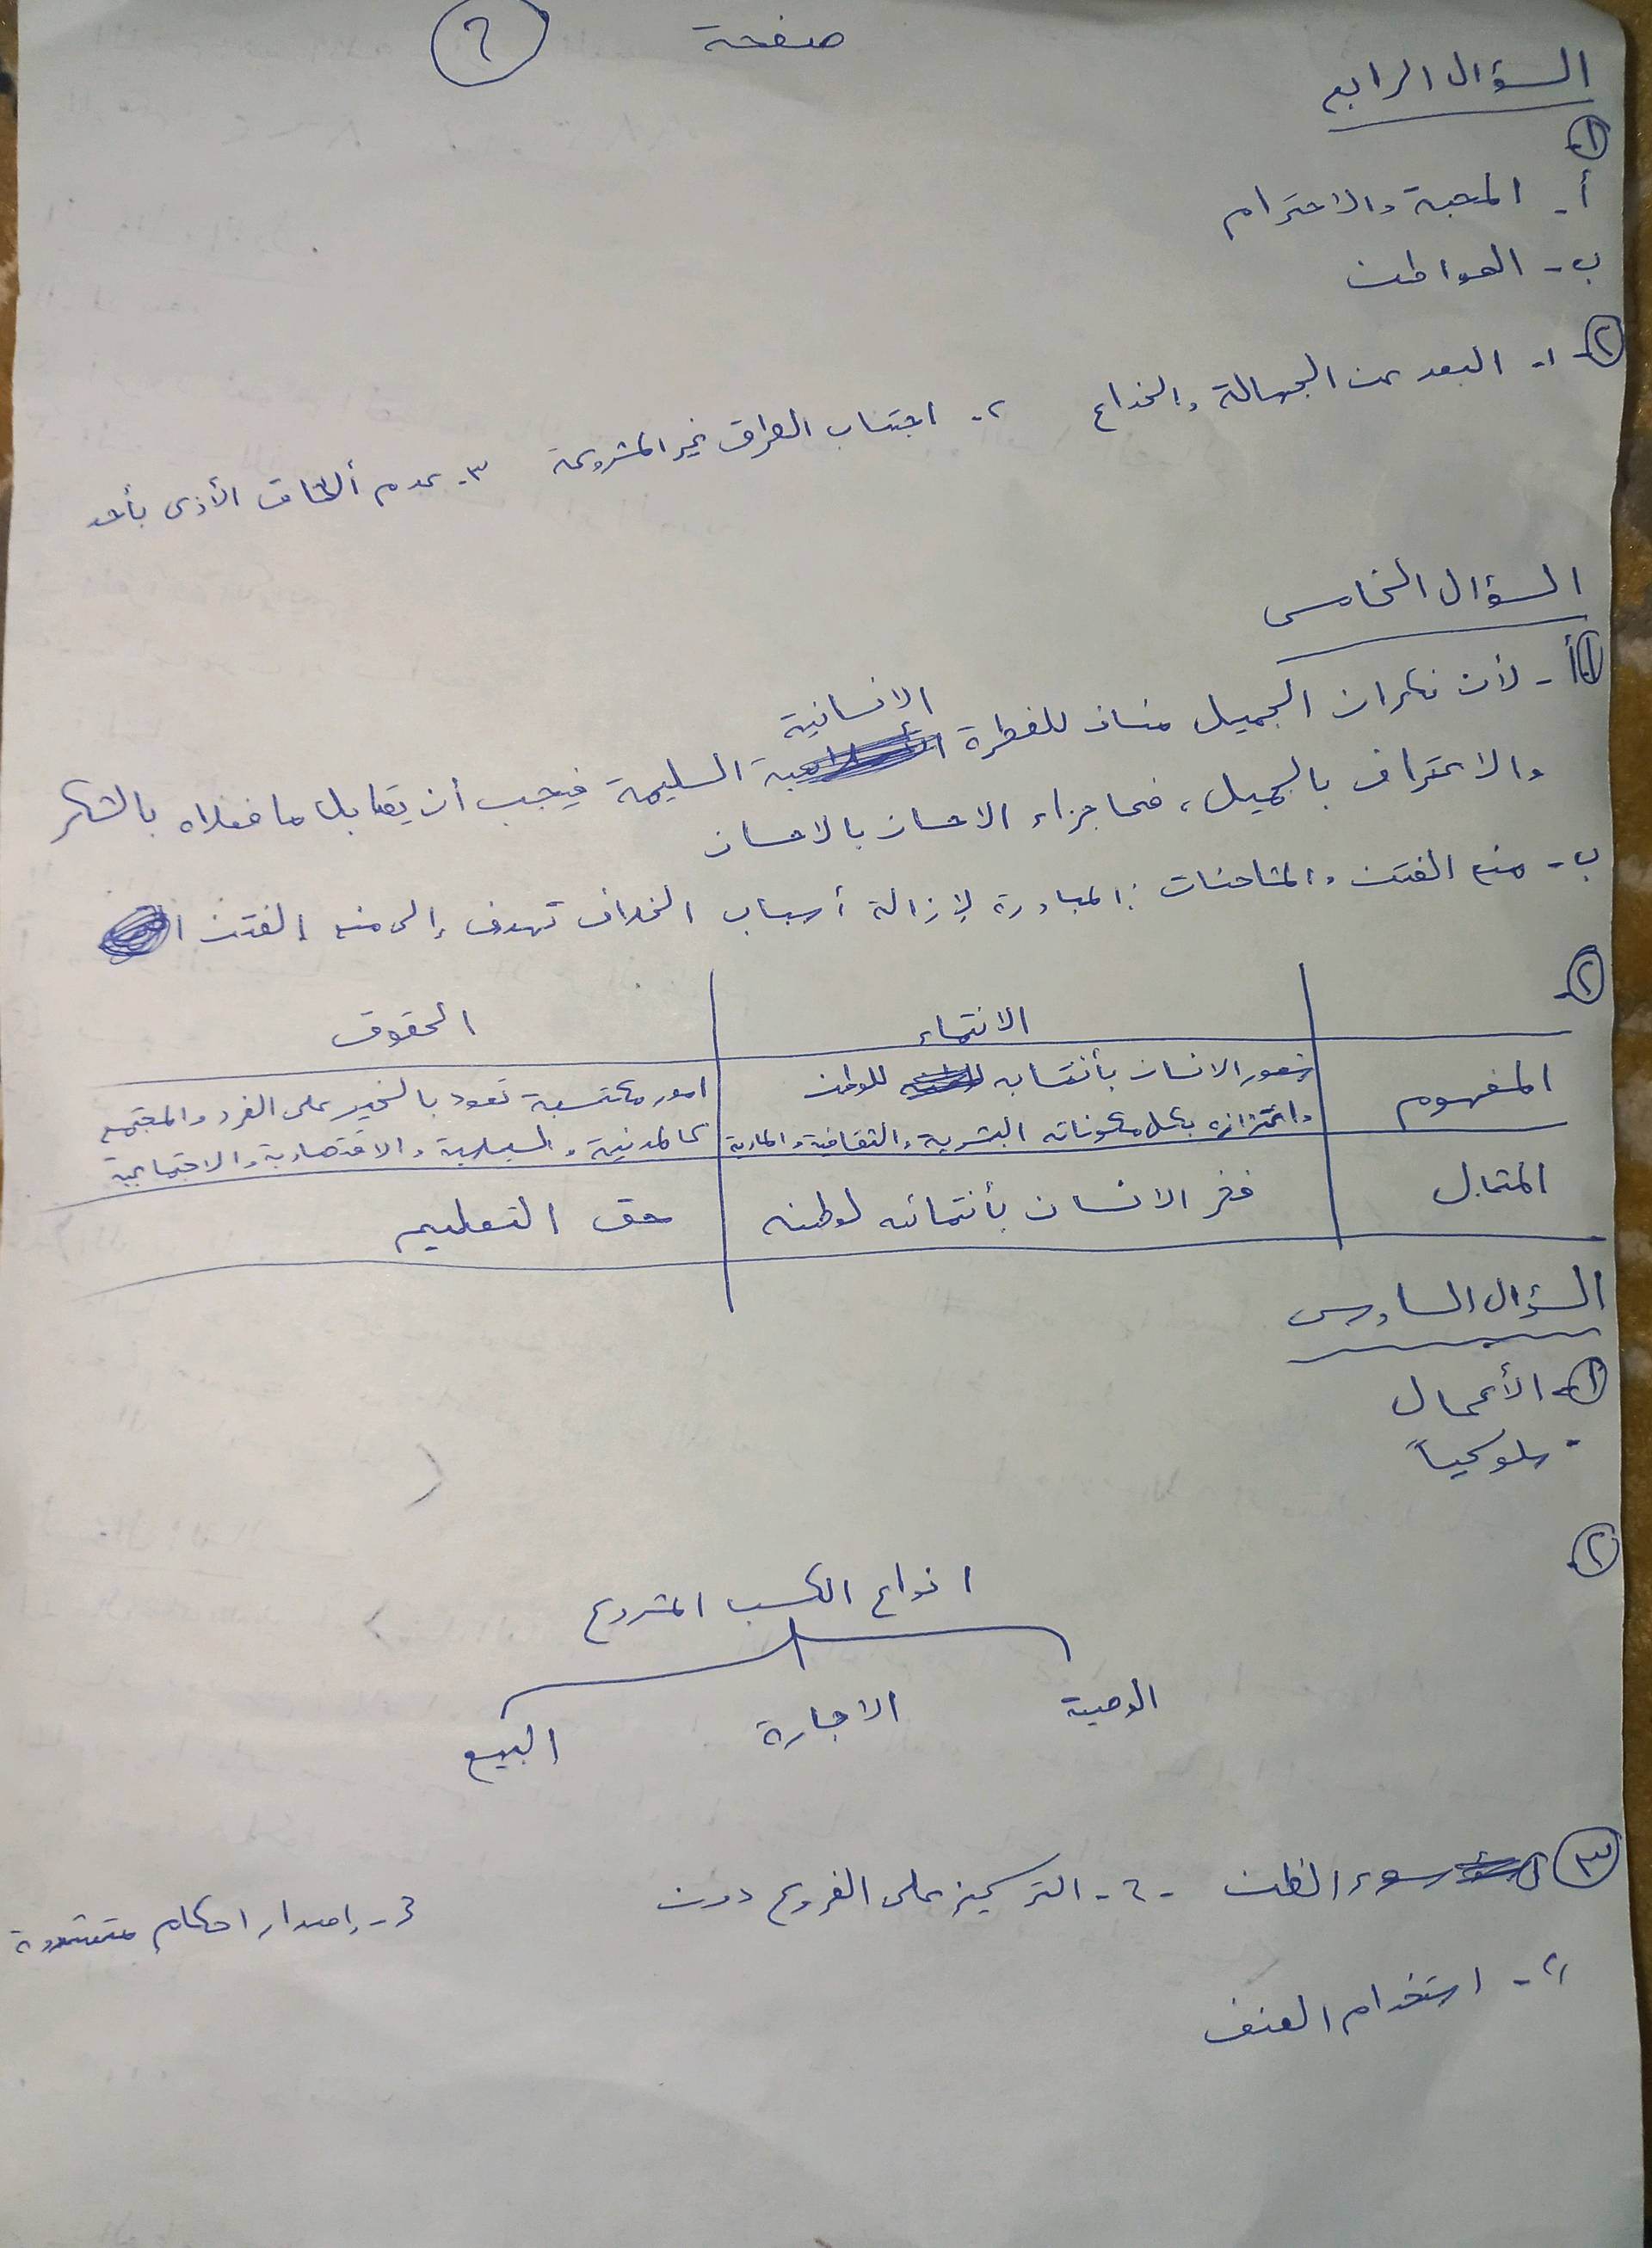 صفحة ٢
السؤال الرابع
١-
أ- المحبة والاحترام
ب- المواطن
٢- ١- البعد عن الجهالة والخداع ٢- اجتناب الطرق غير المشروعة ٣- عدم ألحاق الأذى بأحد
السؤال الخامس
١- أ- لأن نكران الجميل مناف للفطرة الانسانية السليمة فيجب أن يقابل ما فعلاه بالشكر
والاعتراف بالجميل، فما جزاء الاحسان بالاحسان
ب- منع الفتن والمشاحنات: المبادرة لإزالة أسباب الخلاف تهدف إلى منع الفتن
٢-
الانتماء الحقوق
المفهوم شعور الانسان بأنتسابه للوطن امور مكتسبة تعود بالخير على الفرد والمجتمع
واعتزازه بكل مكوناته البشرية والثقافية والمادية كالمدنية والسياسية والاقتصادية والاجتماعية
المثال فخر الانسان بأنتمائه لوطنه حق التعليم
السؤال السادس
١- الأعمال
- سلوكياً
٢-
انواع الكسب المشروع
الوصية الاجارة البيع
٣ سوء الظن -٢- التركيز على الفروع دون ٣- إصدار احكام متشددة
٤- استخدام العنف